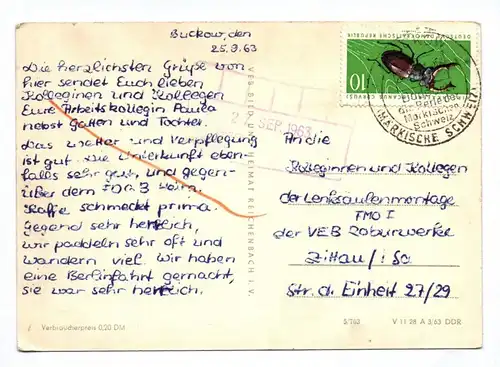 Buckow, den
25.9.63
Die herzlichsten Grüße von
hier sendet Euch lieben
Kolleginnen und Kollegen
Eure Arbeitskollegin Paula
nebst Gatten und Tochter.
Das Wetter und Verpflegung
ist gut. Die Unterkunft eben-
falls sehr gut, und gegen-
über dem FDGB Heim.
Kaffe schmeckt prima.
Gegend sehr herrlich,
wir paddeln sehr oft und
wandern viel. Wir haben
eine Berlinfahrt gemacht,
sie war sehr herrlich.
Verbraucherpreis 0,20 DM
VEB BILD UND HEIMAT REICHENBACH I. V.
SEP 1963
DEUTSCHE DEMOKRATISCHE REPUBLIK
10
LUCANUS CERVUS
die Perle der
Märkischen
Schweiz
(MÄRKISCHE SCHWEIZ)
An die
Kolleginnen und Kollegen
der Lenksäulenmontage
TMO I
der VEB Robur Werke
Zittau / Sa
Str. d. Einheit 27/29
5/782
V 11 28 A 5/63 DDR